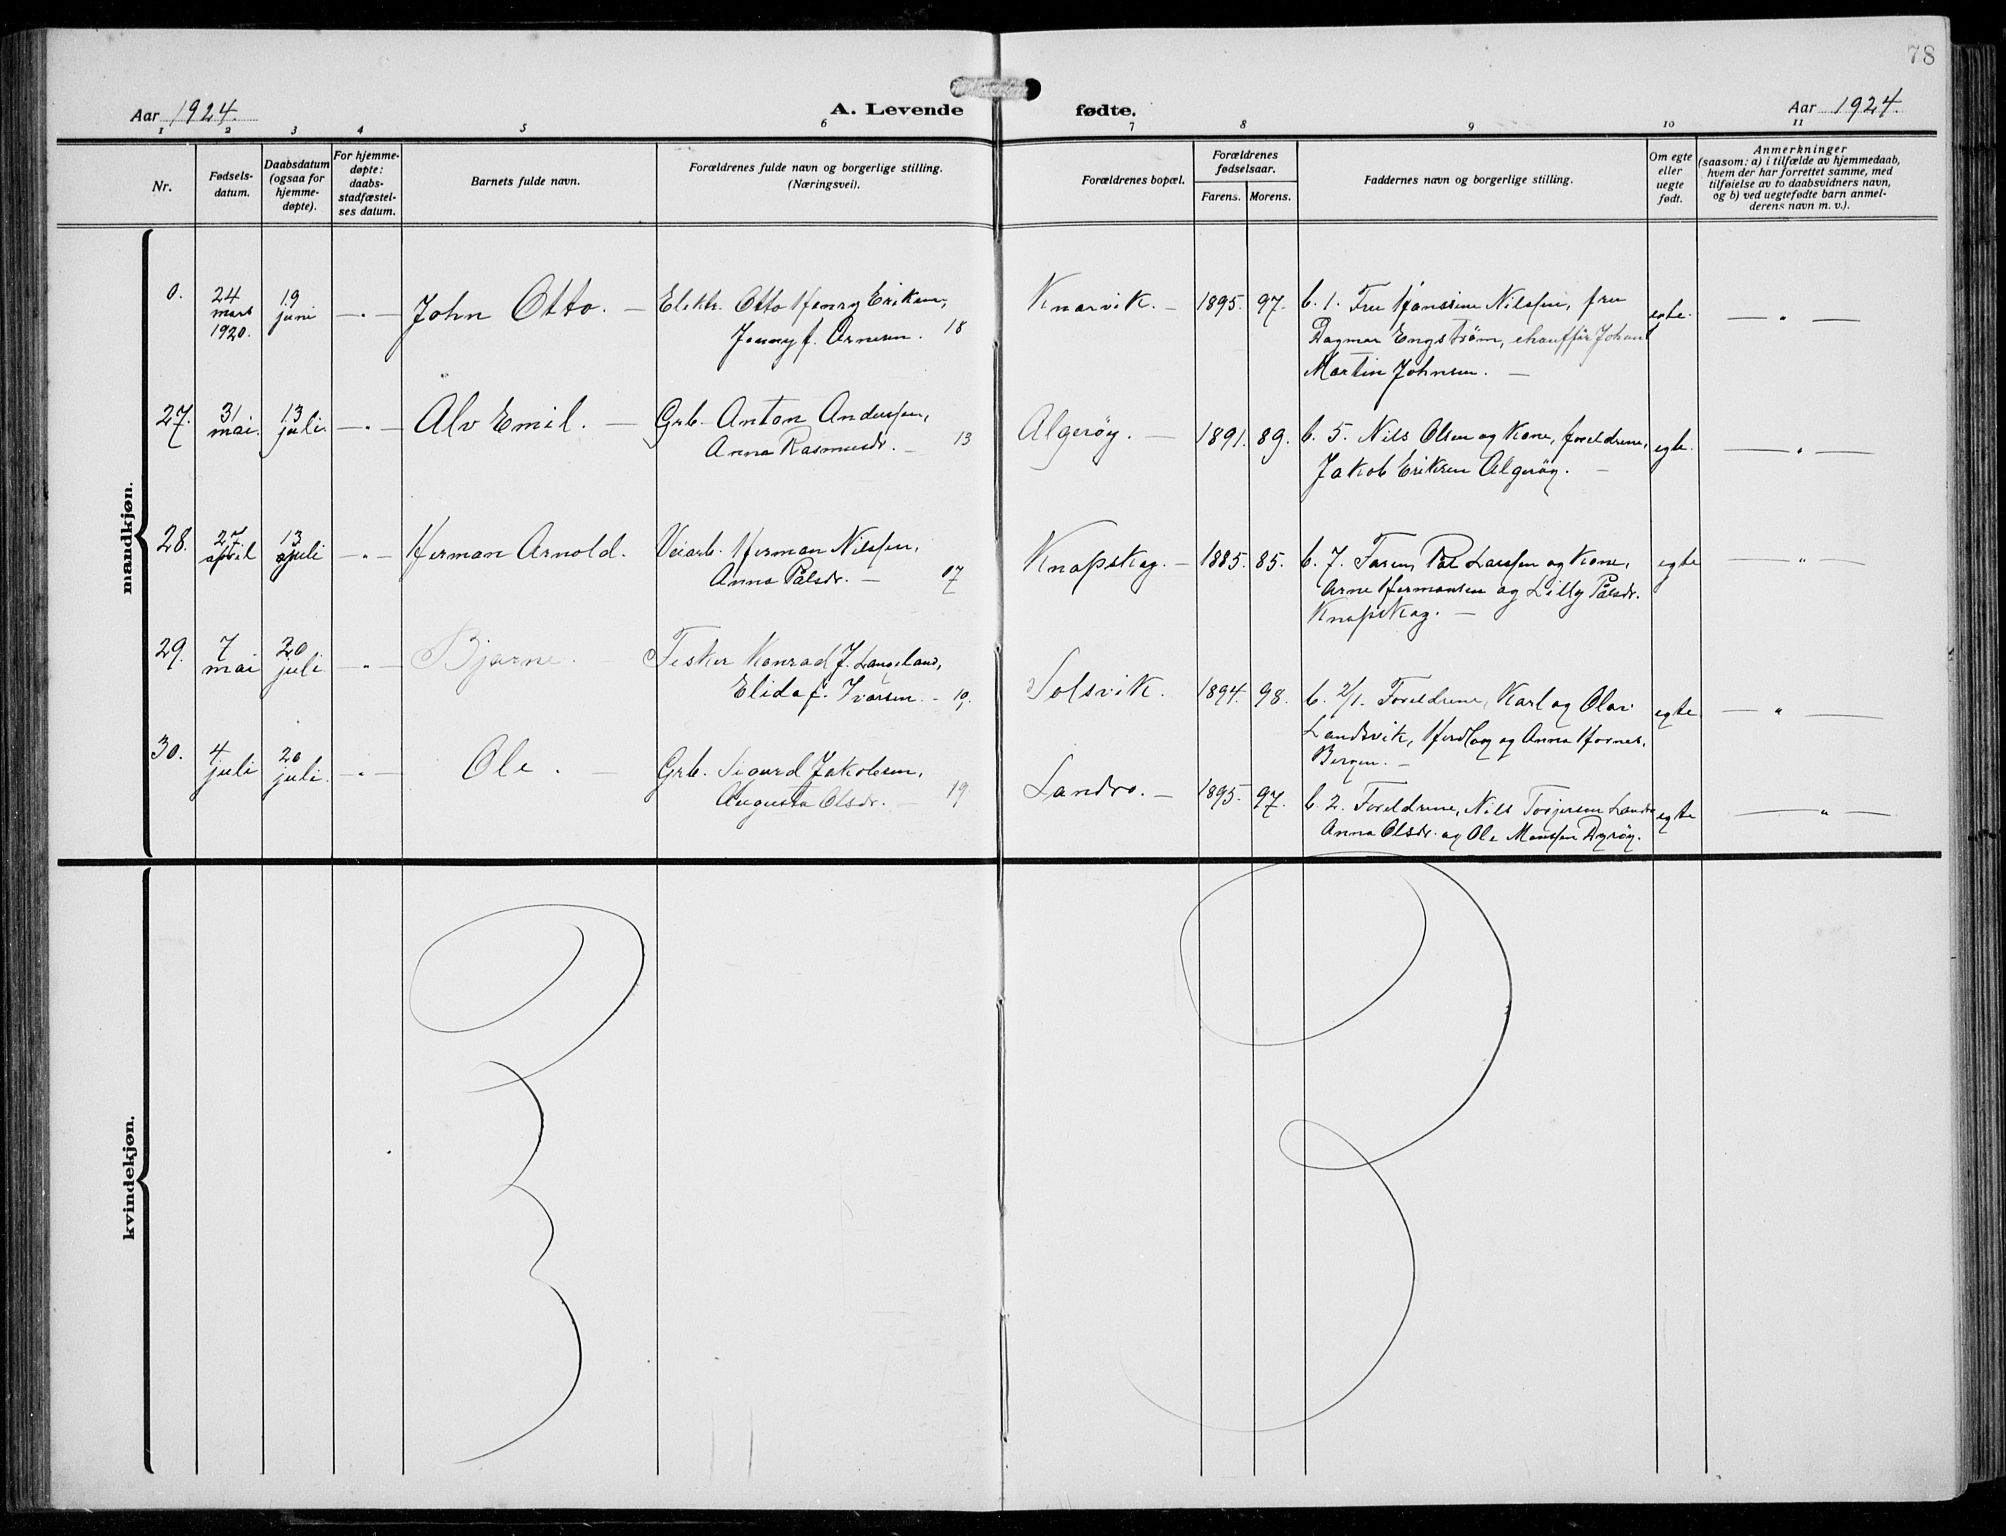 78
Aar 1924.
A. Levende fødte.
Aar 1924.
1 2 3 4 5 6 7 8 9 10 11
Nr.
Fødsels-
datum.
Daabsdatum
(ogsaa for
hjemme-
døpte).
For hjemme-
døpte:
daabs-
stadfæstel-
ses datum.
Barnets fulde navn.
Forældrenes fulde navn og borgerlige stilling.
(Næringsvei).
Forældrenes bopæl.
Forældrenes
fødselsaar.
Farens. Morens.
Faddernes navn og borgerlige stilling.
Om egte
eller
uegte
født.
Anmerkninger
(saasom: a) i tilfælde av hjemmedaab,
hvem der har forrettet samme, med
tilføielse av to daabsvidners navn,
og b) ved uegtefødte barn anmel-
derens navn m. v.).
mandkjøn.
0.
24
mars
1920.
19
juni
— " —
John Otto. —
Elektr. Otto Henry Eriksen,
Jenny f. Arnesen. 18
Knarvik. —
1895. 97.
b. 1. Fru Hanssine Nilssen, fru
Dagmar Engstrøm, chauffør Johan
Martin Johnsen. —
egte.
— " —
27.
31
mai.
13
juli.
— " —
Alv Emil. —
Grb. Anton Anderssen,
Anna Rasmusdr. — 13
Algerøy. —
1891. 89.
b. 5. Nils Olsen og Kone, foreldrene,
Jakob Eriksen Algerøy. —
egte.
— " —
28.
27
april
13
juli
— " —
Herman Arnold.
Veiarb. Herman Nilssen,
Anna Pålsdr. — 07
Knapskog. —
1885. 85.
b. 7. Faren, Pål Larssen og Kone,
Arne Hermansen og Lilly Pålsdr.
Knapskog. —
egte
— " —
29.
7
mai
20
juli
— " —
Bjarne. —
Fisker Konrad J. Langeland,
Elida f. Ivarsen. — 19.
Solsvik.
1894. 98.
b. 2/1. Foreldrene, Karl og
Landsvik, og Anna
Bergen. —
egte
— " —
30.
4
juli
20
juli.
— " —
Ole. —
Grb. Sigurd Jakobsen,
Augusta Olsdr. — 19
Landro. —
1895. 97.
b. 2. Foreldrene, Nils Torjersen Landro
Anna Olsdr. og Ole Monssen Dyrøy.
egte
— " —
kvindekjøn.